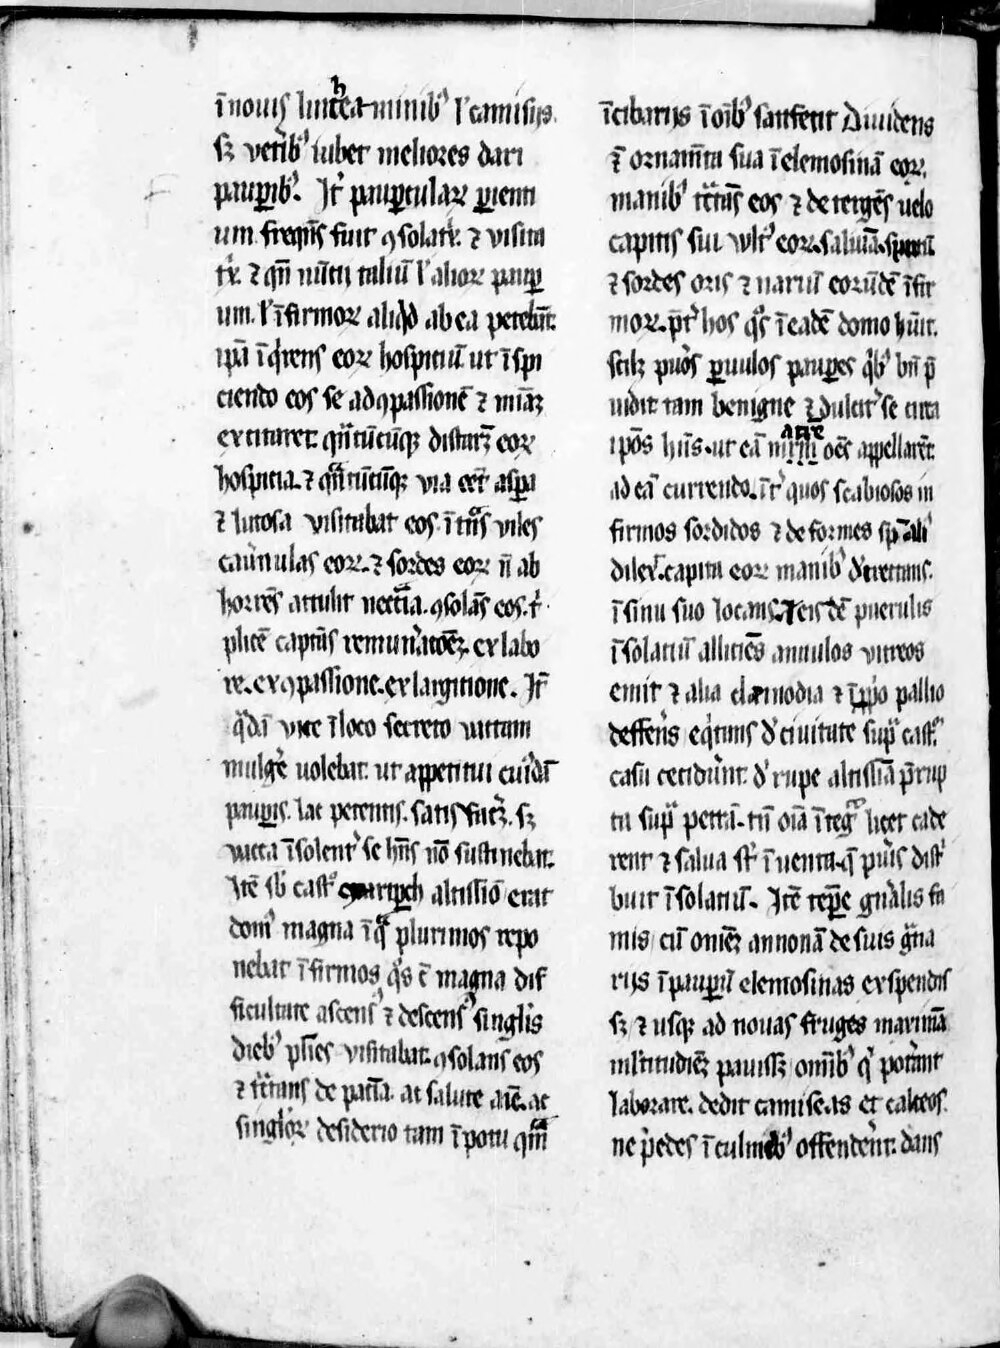 ī nouis lintheaminib⁹ ł camisijs.
sꝫ vetīb⁹ iubet meliores dari
pauꝑib⁹. Itē pauꝑculaꝝ ꝑienti
um freqn̄s fuit ꝯsolatͥx. ⁊ visita
tͥx. ⁊ qn̄ nūtij taliū ł alioꝝ pauꝑ
um. ł īfirmoꝝ aliqͥd ab ea petebāt.
ip̄a īqͥrens eoꝝ hospitiū. ut īspi
ciendo eos se ad ꝯpassionē ⁊ mīaꝫ
excitaret. qͣntūcūqꝫ distarꝫ eoꝝ
hospitia. ⁊ qͣntūcūqꝫ via eēt asꝑa
⁊ lutosa visitabat eos. ītͣns viles
caūnulas eoꝝ. ⁊ sordes eoꝝ nō ab
horrēs attulit nec̄cīa. ꝯsolās eos. tͥ
plicē captās remun̄atōeꝫ. ex labo
re. ex ꝯpassione. ex largitione. Itē
qͣdā vice ī loco secreto vaccam
mulgē uolebat. ut appetitui cuiꝰdā
pauꝑis. lac petentis. satisfacꝫ. sꝫ
vacca īsolent̄ se hn̄s nō sustinebat.
Itē sb̄ castͦ  altissīo erat
domꝰ magna ī qͣ plurimos repo
nebat īfirmos qͦs cū magna dif
ficultate ascensꝰ ⁊ descensꝰ singlis
dieb⁹ plīes visitabat. ꝯsolans eos
⁊ tͣctans de pacīa. ac salute aīe. ac
singloꝝ desiderio tam ī potu qͣm
ī cibarijs ī oīb⁹ satifecit Diuidens
⁊ ornamēta sua ī elemosinā eoꝝ.
manib⁹ tͣctās eos ⁊ detergēs uelo
capitis sui wltꝰ eoꝝ. saliuā. sputū
⁊ sordes oris ⁊ nariū eorūdē īfir
moꝝ. p̄t hos qͦs ī eadē domo hūit.
scilꝫ puōs ꝑuulos pauꝑes qͥb⁹ bn̄ p̄
uidit tam benigne ⁊ dulcit̄ se circa
ip̄os hn̄s. ut eā matrē oēs appellarēt.
ad eā currendo. īt̄ quos scabiosos in
firmos sordidos ⁊ deformes sp̄ali
dilex̄. capita eoꝝ manib⁹ dͥtrectans.
ī sinu suo locans. ⁊ eisdē puerulis
ī solatiū alliciēs annulos vitreos
emit ⁊ alia elamodia ⁊ ī ppͦo pallio
deffens eqͥtans dͥ ciuitate supͣ castͦ.
casu cecidūnt dͥ rupe altissīa p̄rup
ta supͣ petrā. tn̄ oīa ītegͣ licet cade
rent ⁊ salua st̄ īuenta. q̄ puīs distͥ
buit ī solatiū. Itē tēꝑe gn̄alis fa
mis cū omēꝫ annonā de suis gͣna
rijs ī pauꝑū elemosinas expendis
sꝫ ⁊ usqꝫ ad nouas fruges maximā
ml̄titudiēꝫ pauissꝫ omīb⁹ qͥ potāant
laborare. dedit camiseas et calceos.
ne pedes ī culmib⁹ offendēnt. dans